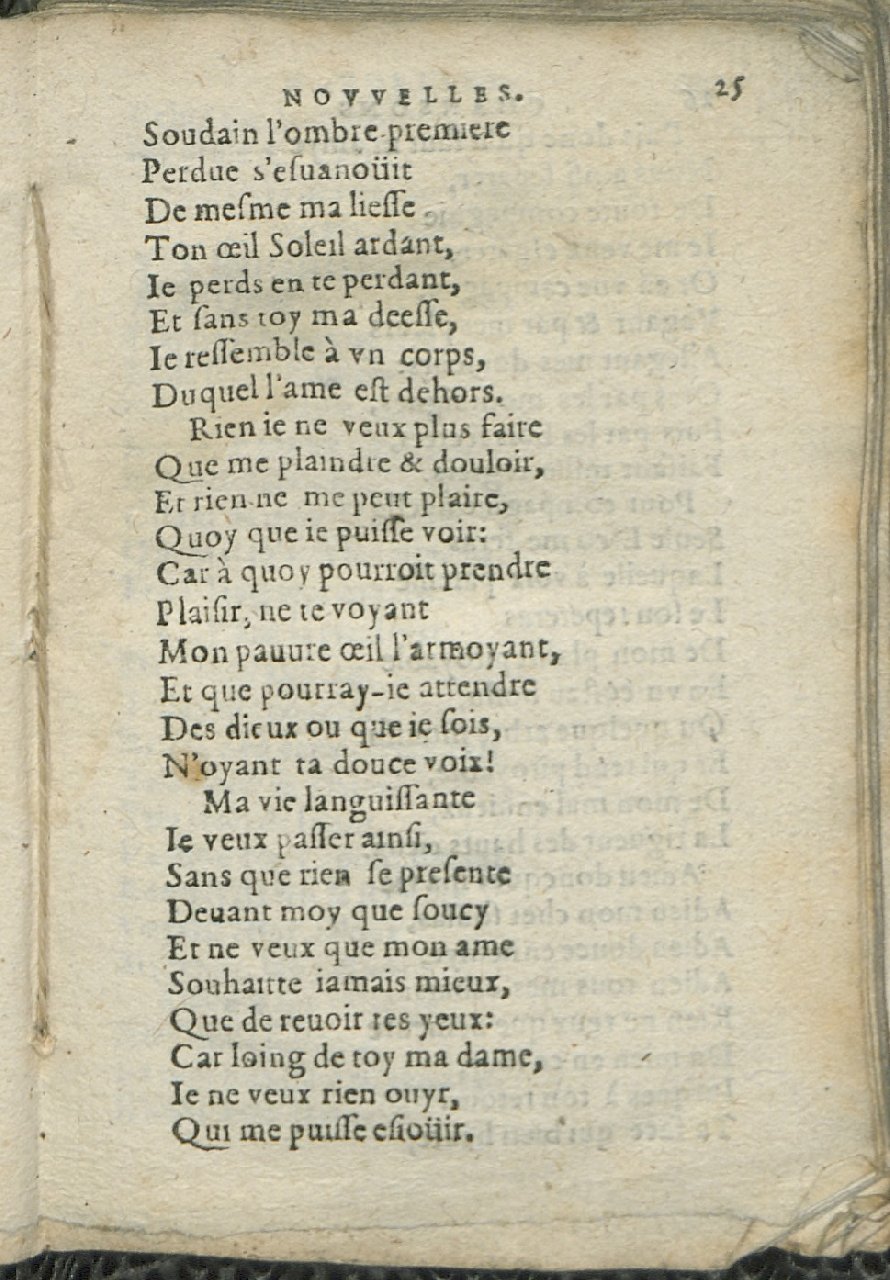 NOVVELLES. 25
Soudain l'ombre premiere
Perdue s'esuanoüit
De meſme ma lieſſe
Ton œil Soleil ardant,
Ie perds en te perdant,
Et ſans toy ma deeſſe,
Ie reſſemble à vn corps,
Duquel l'ame eſt dehors.
Rien ie ne veux plus faire
Que me plaindre & douloir,
Et rien ne me peut plaire,
Quoy que ie puiſſe voir:
Car à quoy pourroit prendre
Plaiſir, ne te voyant
Mon pauure œil l'armoyant,
Et que pourray-ie attendre
Des dieux ou que ie ſois,
N'oyant ta douce voix!
Ma vie languiſſante
Ie veux paſſer ainſi,
Sans que rien ſe preſente
Deuant moy que ſoucy
Et ne veux que mon ame
Souhaitte iamais mieux,
Que de reuoir tes yeux:
Car loing de toy ma dame,
Ie ne veux rien ouyr,
Qui me puiſſe eſioüir.